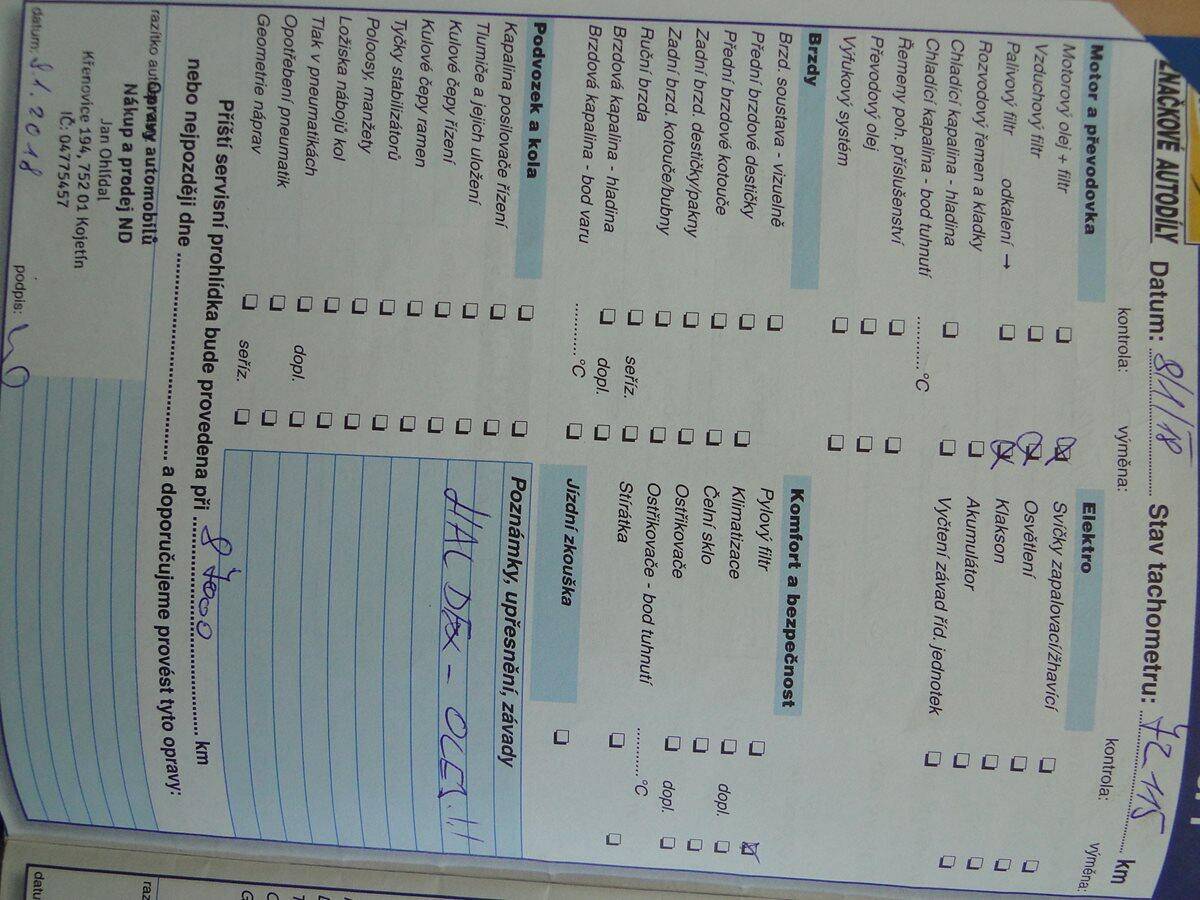 ZNAČKOVÉ AUTODÍLY
Datum: 8/1/18 Stav tachometru: 72 115 km
kontrola: výměna: kontrola: výměna:
Motor a převodovka
Motorový olej + filtr
Vzduchový filtr
Palivový filtr odkalení →
Rozvodový řemen a kladky
Chladící kapalina - hladina
Chladící kapalina - bod tuhnutí ............°C
Řemeny poh. příslušenství
Převodový olej
Výfukový systém
Brzdy
Brzd. soustava - vizuelně
Přední brzdové destičky
Přední brzdové kotouče
Zadní brzd. destičky/pakny
Zadní brzd. kotouče/bubny
Ruční brzda seříz.
Brzdová kapalina - hladina dopl.
Brzdová kapalina - bod varu ............°C
Podvozek a kola
Kapalina posilovače řízení
Tlumiče a jejich uložení
Kulové čepy řízení
Kulové čepy ramen
Tyčky stabilizátorů
Poloosy, manžety
Ložiska nábojů kol
Tlak v pneumatikách dopl.
Opotřebení pneumatik
Geometrie náprav seříz.
Elektro
Svíčky zapalovací/žhavící
Osvětlení
Klakson
Akumulátor
Vyčtení závad říd. jednotek
Komfort a bezpečnost
Pylový filtr
Klimatizace dopl.
Čelní sklo
Ostřikovače dopl.
Ostřikovače - bod tuhnutí ............°C
Stírátka
Jízdní zkouška
Poznámky, upřesnění, závady
HALDEX - OLEJ!!
Příští servisní prohlídka bude provedena při 87000 km
nebo nejpozději dne ........................ a doporučujeme provést tyto opravy:
razítko
Opravy automobilů
Nákup a prodej ND
Jan Ohlídal
Křenovice 194, 752 01 Kojetín
IČ: 04775457
datum: 8.1.2018 podpis: